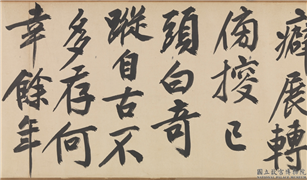 癖展轉
傍搜已
頭白奇
蹤自古不
多存何
幸餘年
國立故宮博物院